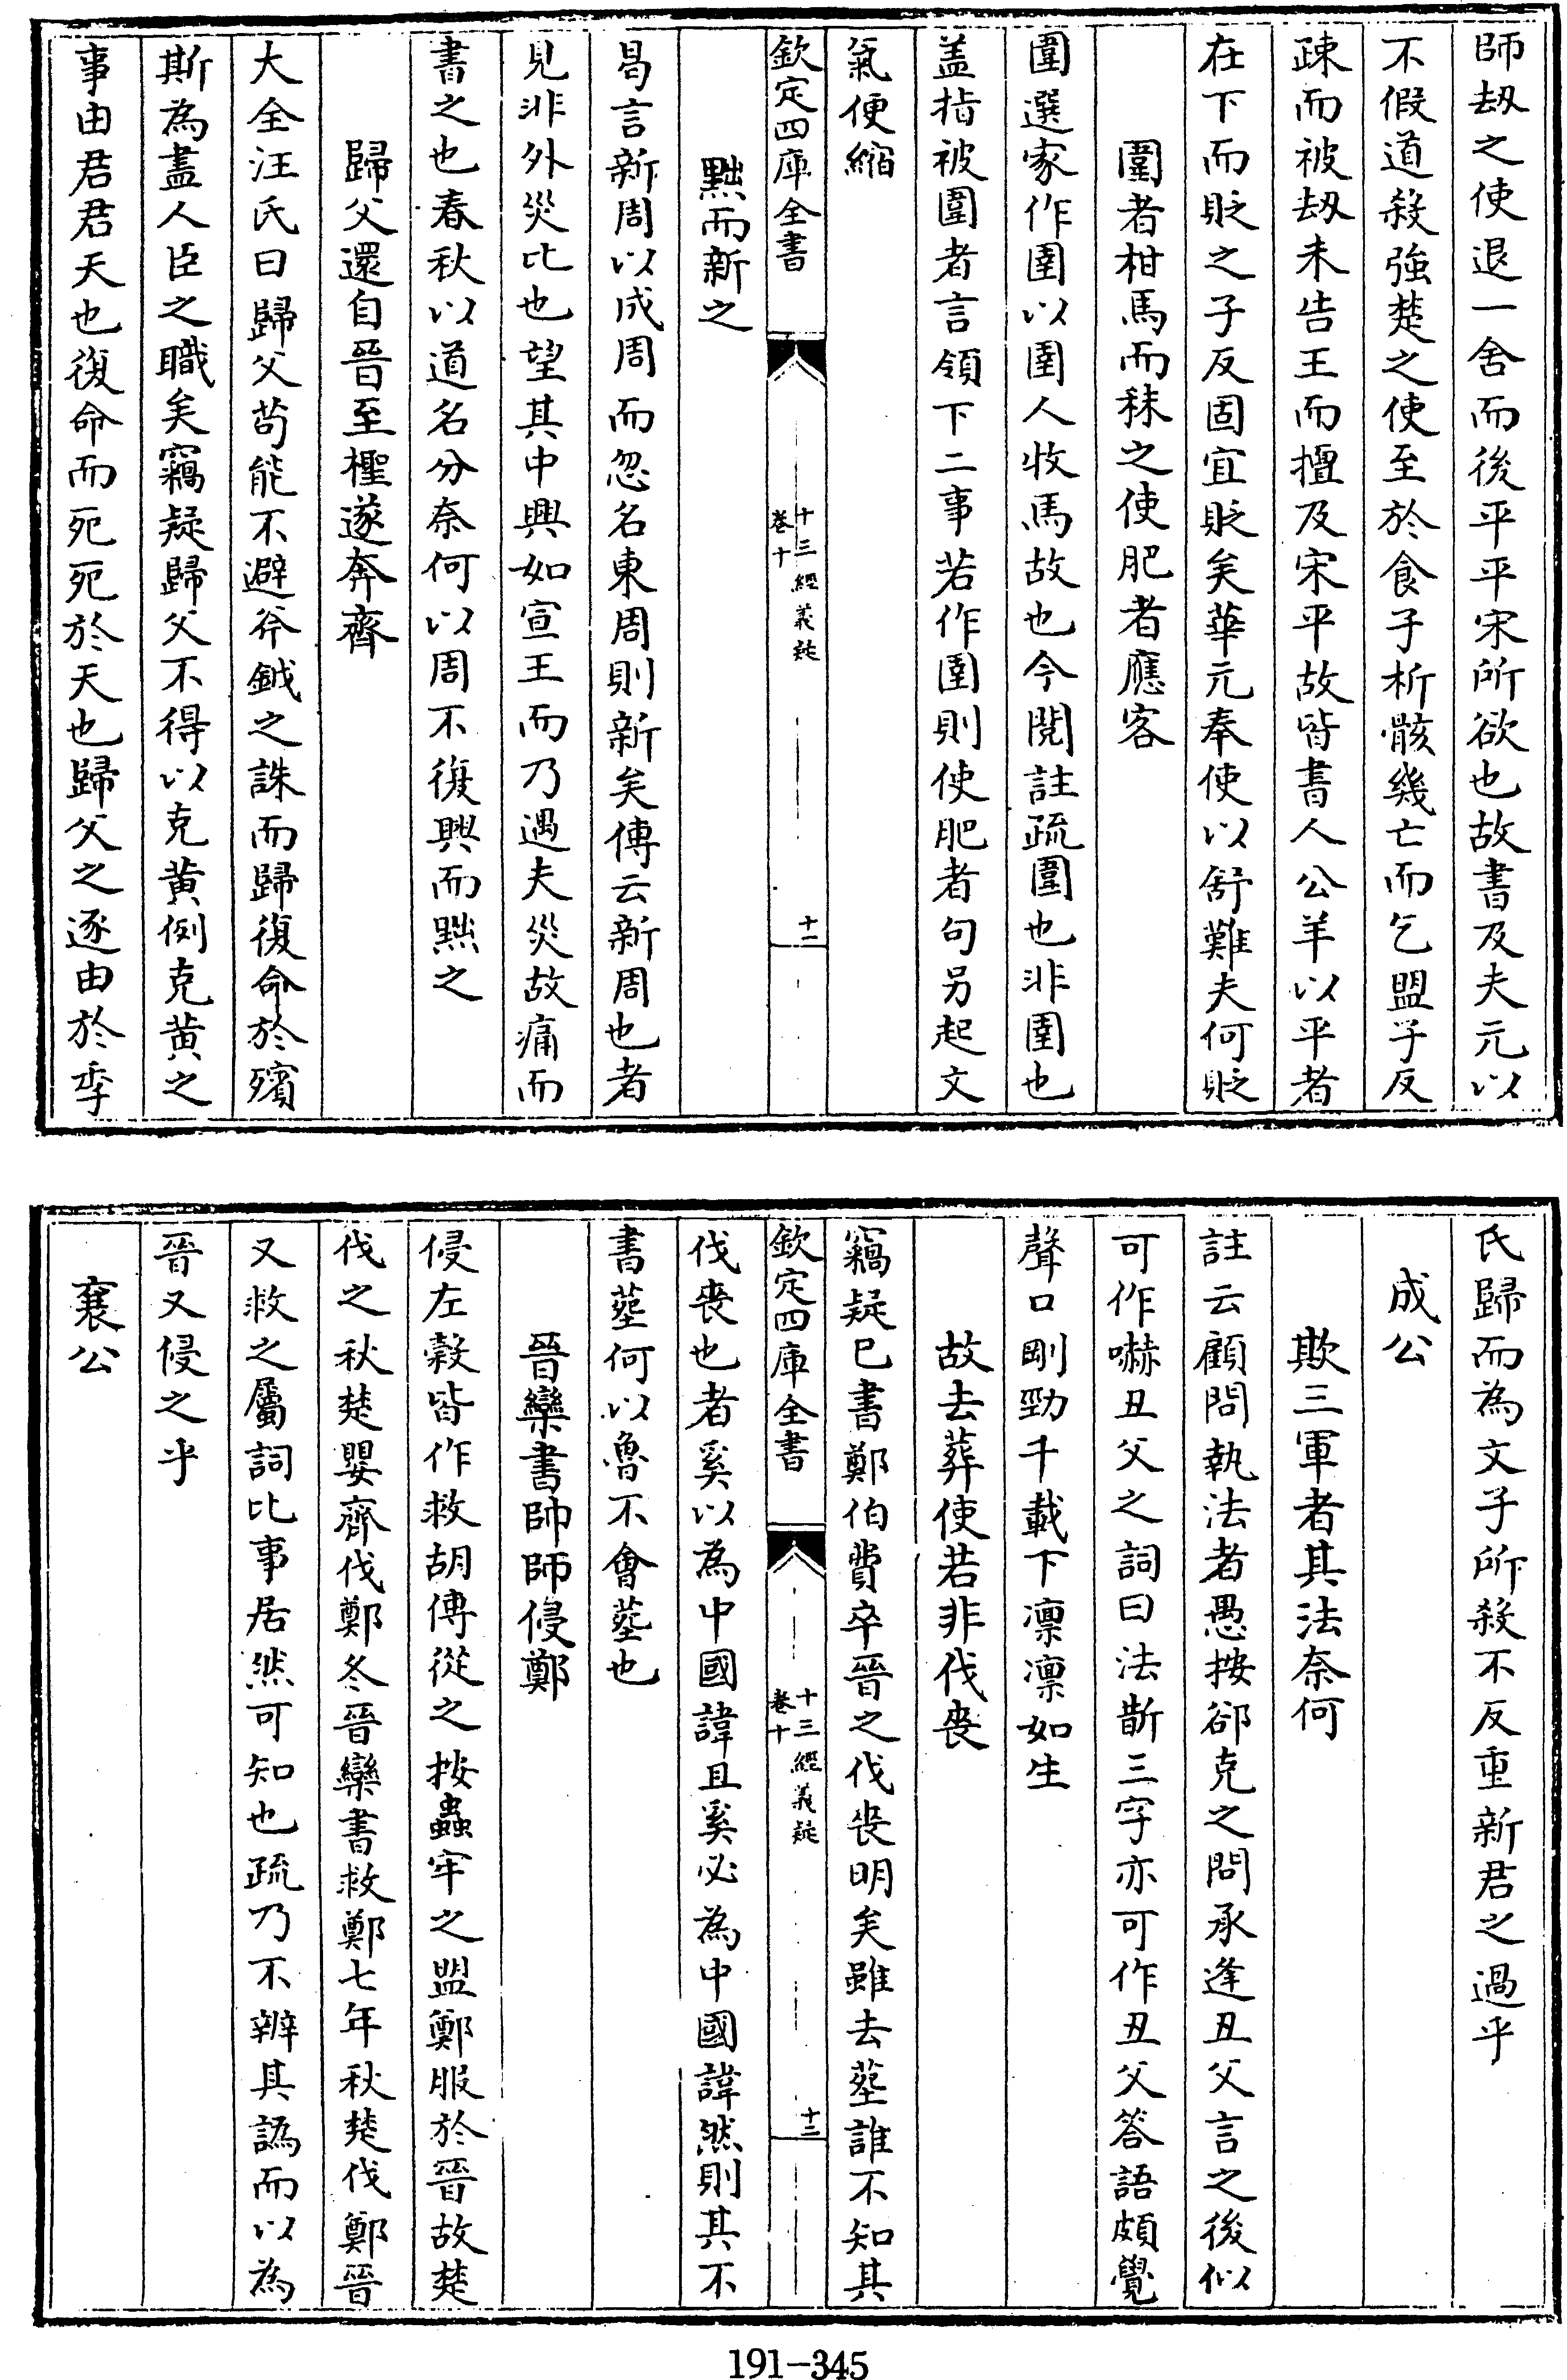 師刼之使退一舍而後平平宋所欲也故書及夫元以
不假道殺強楚之使至於食子析骸幾亡而乞盟子反
疎而被刼未告王而擅及宋平故皆書人公羊以平者
在下而貶之子反固宜貶矣華元奉使以舒難夫何貶
圍者柑馬而秣之使肥者應客
圍選家作圉以圉人收馬故也今閱註疏圍也非圉也
盖指被圍者言領下二事若作圉則使肥者句另起文
氣便縮
欽定四庫全書
十三經義疑
卷十
十二
黜而新之
曷言新周以成周而忽名東周則新矣傳云新周也者
見非外災比也望其中興如宣王而乃遇夫災故痛而
書之也春秋以道名分奈何以周不復興而黜之
歸父還自晉至檉遂奔齊
大全汪氏曰歸父苟能不避斧鉞之誅而歸復命於殯
斯為盡人臣之職矣竊疑歸父不得以克黄例克黄之
事由君君天也復命而死死於天也歸父之逐由於季
氏歸而為文子所殺不反重新君之過乎
成公
欺三軍者其法奈何
註云顧問執法者愚按郤克之問承逢丑父言之後似
可作嚇丑父之詞曰法斮三字亦可作丑父答語頗覺
聲口剛勁千載下凛凛如生
故去葬使若非伐喪
竊疑已書鄭伯費卒晉之伐喪明矣雖去塟誰不知其
欽定四庫全書
十三經義疑
卷十
十三
伐喪也者奚以為中國諱且奚必為中國諱然則其不
書塟何以魯不會塟也
晉欒書帥師侵鄭
侵左穀皆作救胡傳從之按蟲牢之盟鄭服於晉故楚
伐之秋楚嬰齊伐鄭冬晉欒書救鄭七年秋楚伐鄭晉
又救之屬詞比事居然可知也疏乃不辨其譌而以為
晉又侵之乎
襄公
191-345